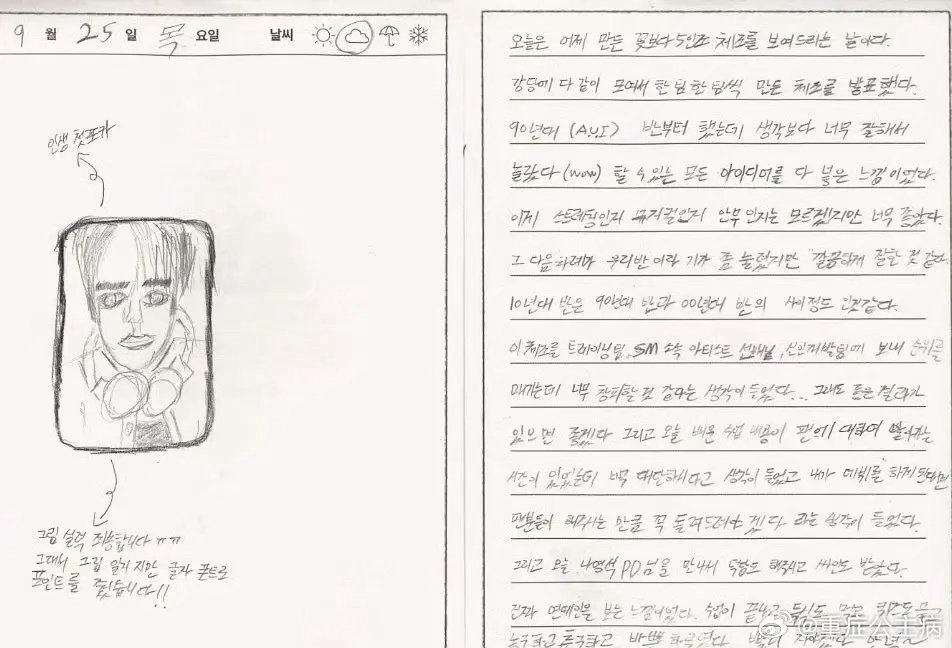 9 월 25 일 목 요일 날씨
인생 첫포카
그림 실력 죄송합니다 ㅠㅠ
그대신 그림 말기지만 글자 폰트로
포인트를 줬습니다!!
오늘은 어제 만든 꽃보다 5인조 체조를 보여드리는 날이다.
강당에 다 같이 모여서 한 팀 한 팀씩 만든 체조를 발표했다.
90년대 (A.U.I) 반부터 했는데 생각보다 너무 잘해서
놀랐다 (wow) 할 수 있는 모든 아이디어를 다 넣은 느낌이었다.
이게 스트레칭인지 뮤지컬인지 안무인지는 모르겠지만 너무 좋았다.
그 다음 차례가 우리반이라 기가 좀 눌렸지만 깔끔하게 잘한 것 같다
10년대 반은 90년대 반과 00년대 반의 사이정도 인것같다.
이 체조를 트레이닝팀, SM 소속 아티스트 선배님, 신인개발팀에 보내 순위를
매기는데 너무 창피할 것 같다는 생각이 들었다... 그래도 좋은 결과가
있으면 좋겠다 그리고 오늘 배운 수업 내용이 팬에 대하여 알아가는
시간이 있었는데 대단하시다고 생각이 들었고 내가 데뷔를 하게 된다면
팬분들이 해주시는 만큼 꼭 돌려드려야 겠다 라는 생각이 들었다.
그리고 오늘 나영석 PD님을 만나서 덕담도 해주시고 싸인도 받았다.
진짜 연예인을 보는 느낌이었다. 수업이 끝나고
농구하고 축구하고 바쁜 하루였다
@重症公主病